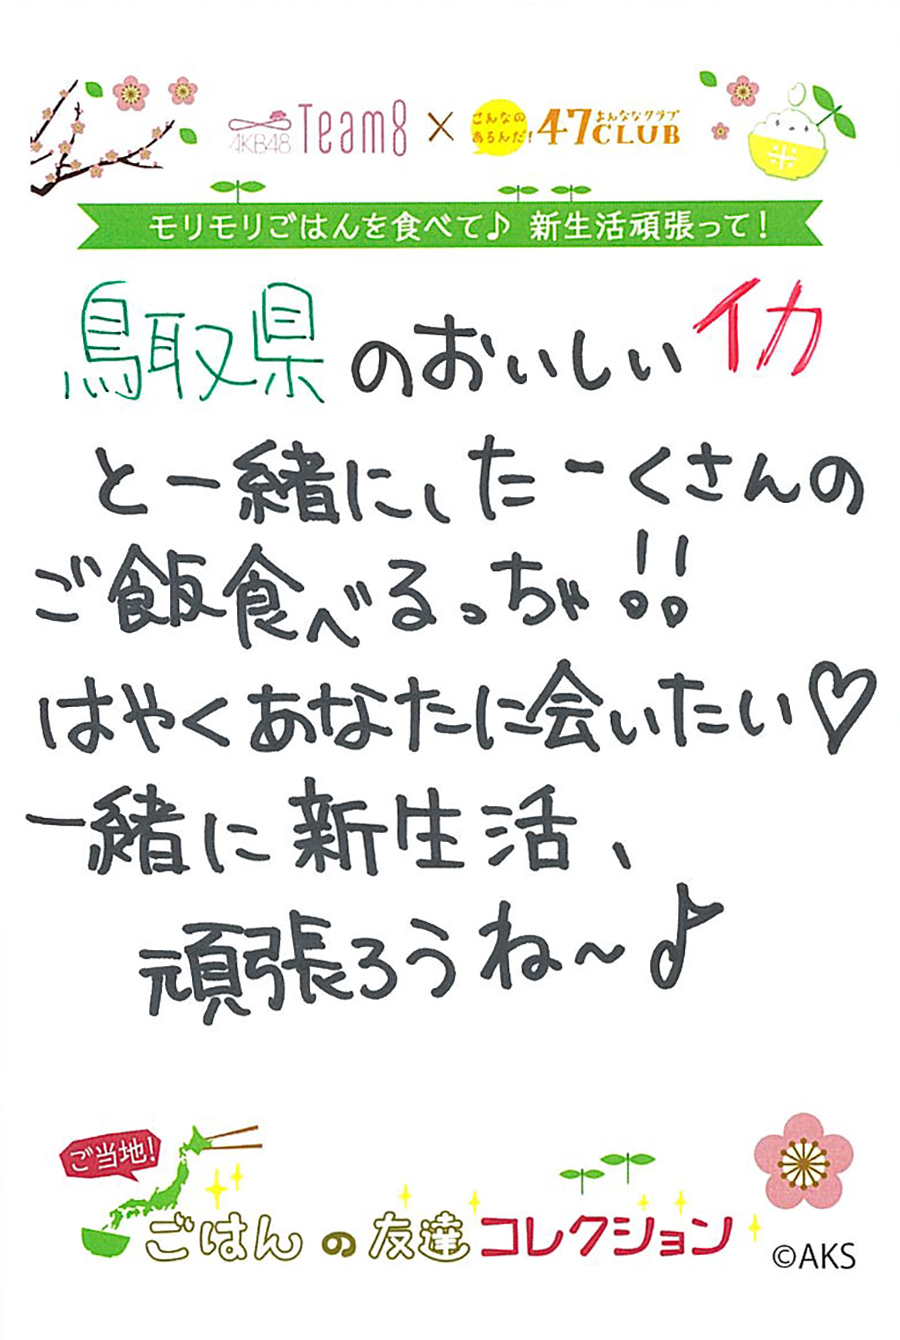 AKB48 Team8 × こんなのあるんだ! 47CLUB よんななクラブ
モリモリごはんを食べて♪ 新生活頑張って!
鳥取県のおいしいイカ
と一緒に、たーくさんの
ご飯食べるっちゃ!!
はやくあなたに会いたい♡
一緒に新生活、
頑張ろうね~♪
ご当地!
ごはんの友達コレクション
©AKS